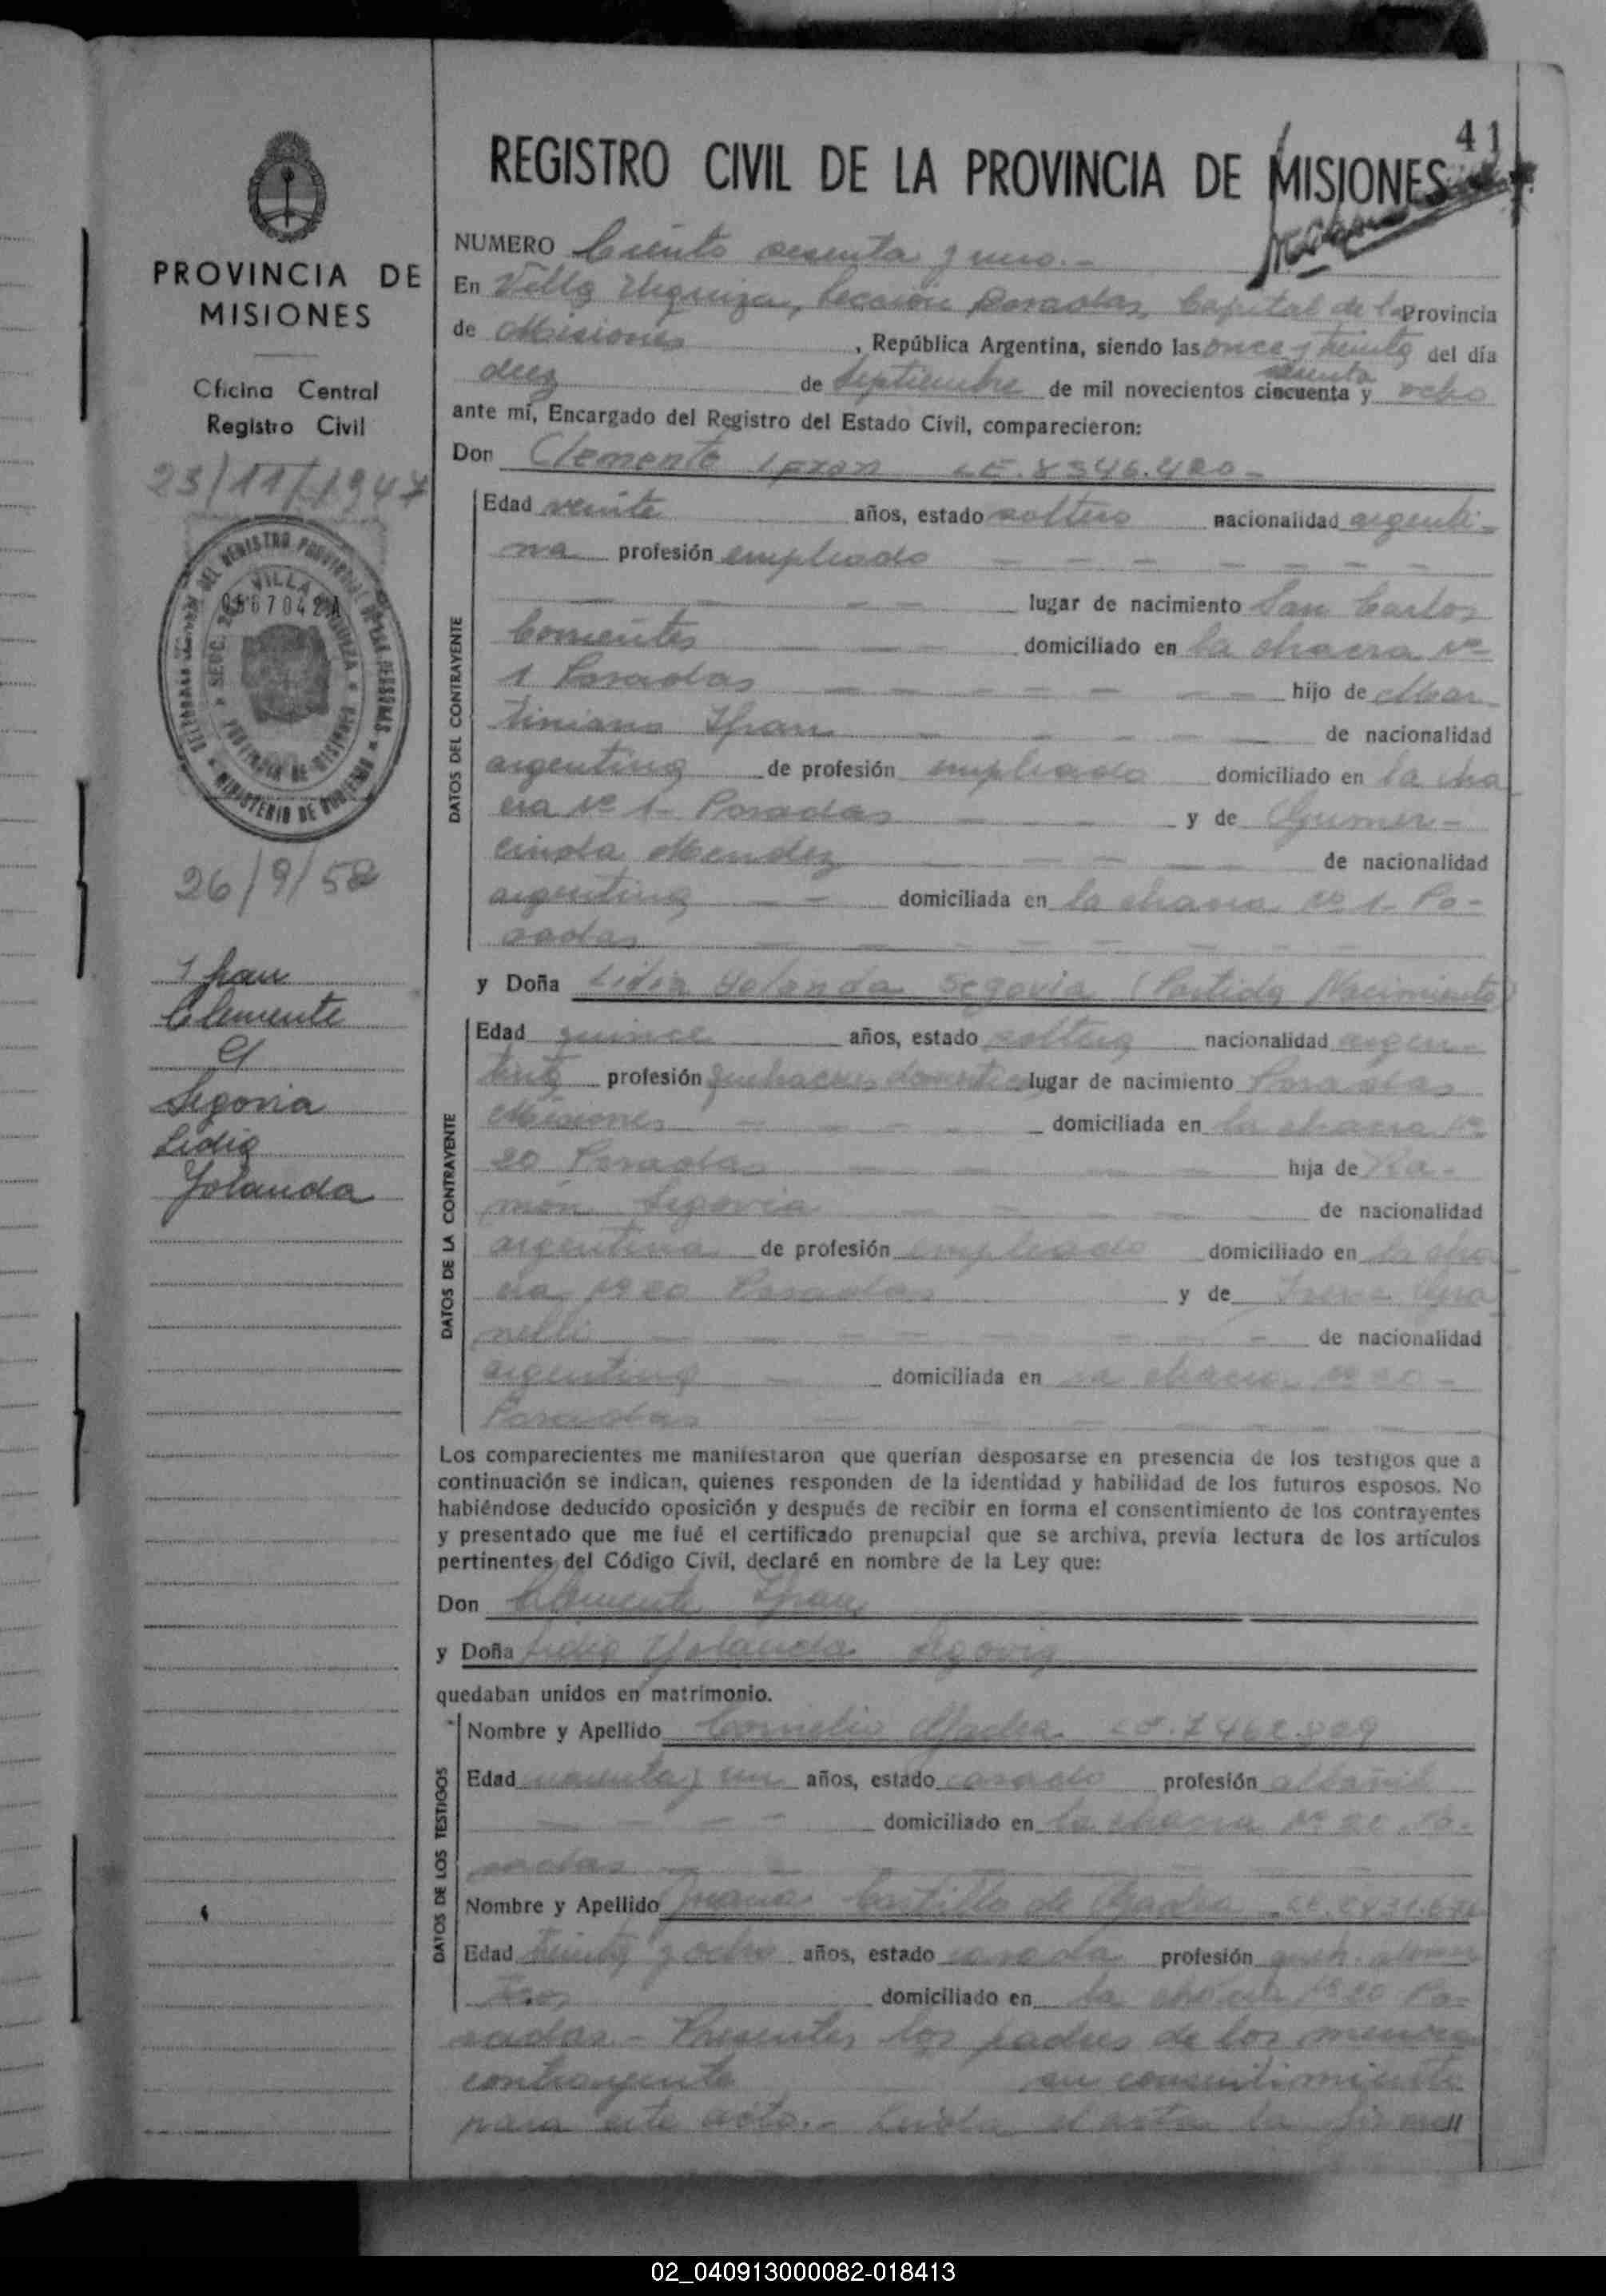 41
REGISTRO CIVIL DE LA PROVINCIA DE MISIONES
PROVINCIA DE
MISIONES
Oficina Central
Registro Civil
23/11/1947
VILLA URQUIZA
PROVINCIA DE MISIONES
MINISTERIO DE GOBIERNO
26/9/58
Ifran
Clemente
Segovia
Lidia
Yolanda
NUMERO Ciento sesenta y uno.-
En Villa Urquiza, Sección Posadas, Capital de la Provincia
de Misiones, República Argentina, siendo las once y treinta del día
diez de Septiembre de mil novecientos cincuenta sesenta y ocho
ante mí, Encargado del Registro del Estado Civil, comparecieron:
Don Clemente Ifran L.E. 8546.420-
DATOS DEL CONTRAYENTE
Edad veinte años, estado soltero nacionalidad argenti-
na profesión empleado
lugar de nacimiento San Carlos
Corrientes domiciliado en la chacra Nº
1 Posadas hijo de Mar
tiniano Ifran de nacionalidad
argentina de profesión empleado domiciliado en la cha
cra Nº 1- Posadas y de Gumer-
cinda Mendez de nacionalidad
argentina domiciliada en la chacra Nº 1- Po-
sadas
y Doña Lidia Yolanda Segovia (Partida Nacimiento)
DATOS DE LA CONTRAYENTE
Edad quince años, estado soltera nacionalidad argen-
tina profesión quehaceres domesticos lugar de nacimiento Posadas
Misiones domiciliada en la chacra Nº
20 Posadas hija de Ra-
món Segovia de nacionalidad
argentina de profesión empleado domiciliado en la cha
cra Nº 20 Posadas y de
de nacionalidad
argentina domiciliada en la chacra Nº 20-
Posadas
Los comparecientes me manifestaron que querían desposarse en presencia de los testigos que a
continuación se indican, quienes responden de la identidad y habilidad de los futuros esposos. No
habiéndose deducido oposición y después de recibir en forma el consentimiento de los contrayentes
y presentado que me fué el certificado prenupcial que se archiva, previa lectura de los artículos
pertinentes del Código Civil, declaré en nombre de la Ley que:
Don Clemente Ifran
y Doña Lidia Yolanda Segovia
quedaban unidos en matrimonio.
DATOS DE LOS TESTIGOS
Nombre y Apellido Cornelio
Edad y un años, estado casado profesión albañil
domiciliado en la chacra Nº 20 Po-
sadas
Nombre y Apellido Juana Castillo de
Edad treinta y ocho años, estado casada profesión queh. domes
ticos domiciliado en la chacra Nº 20 Po-
sadas.- Presentes los padres de los menores
contrayente su consentimiento
para este acto.- Leida el acta la
02_040913000082-018413